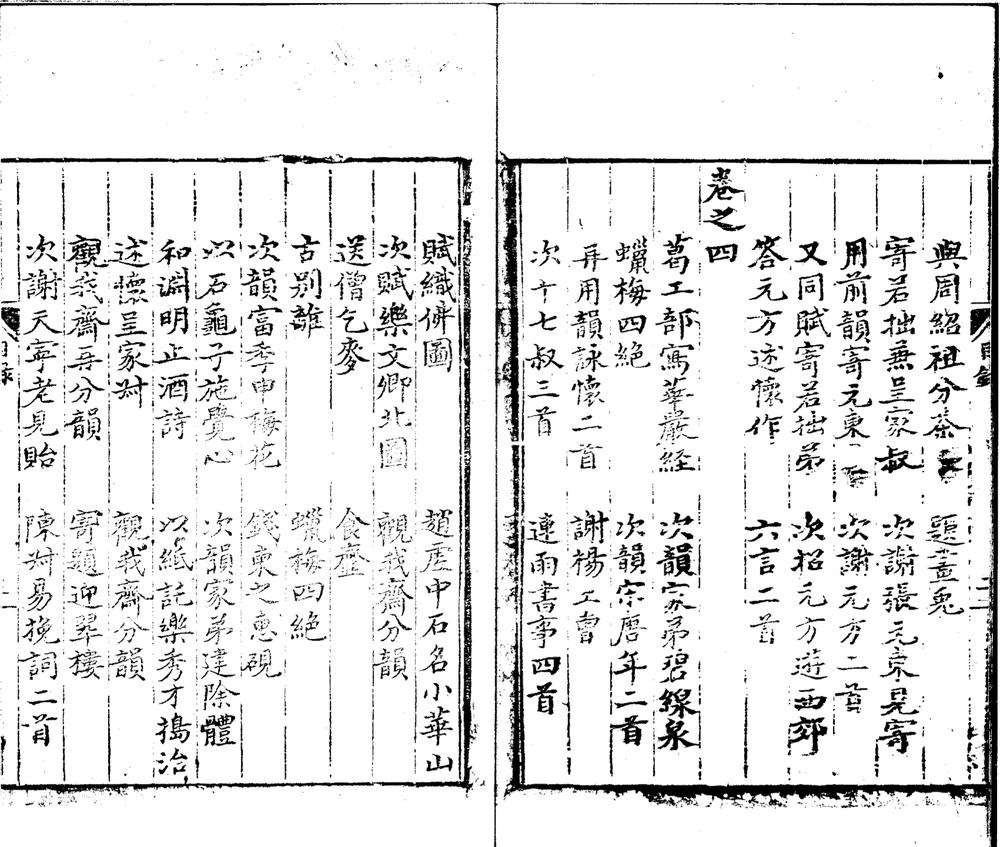 與周紹祖分茶　題畫兔
寄若拙兼呈家叔　次謝張元東見寄
用前韻寄元東　次謝元方二首
又同賦寄若拙弟　次招元方遊西郊
答元方述懷作　六言二首
卷之四
葛工部寫華嚴経　次韻家弟碧線泉
蠟梅四絶　次韻宋唐年二首
再用韻詠懷二首　謝楊工曹
次十七叔三首　連雨書事四首
目錄
賦織佛圖　趙虗中石名小華山
次賦樂文卿北園　觀我齋分韻
送僧乞麥　食虀
古别離　蠟梅四絶
次韻富季申梅花　錢東之惠硯
以石龜子施覺心　次韻家弟建除體
和淵明止酒詩　以紙託樂秀才搗治
述懷呈家叔　觀我齋分韻
觀我齋再分韻　寄題迎翠樓
次謝天寧老見貽　陳叔易挽詞二首
目錄